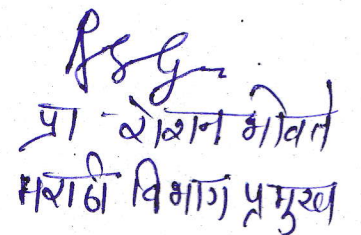 प्रा रोशन भोवते
मराठी विभाग प्रमुख